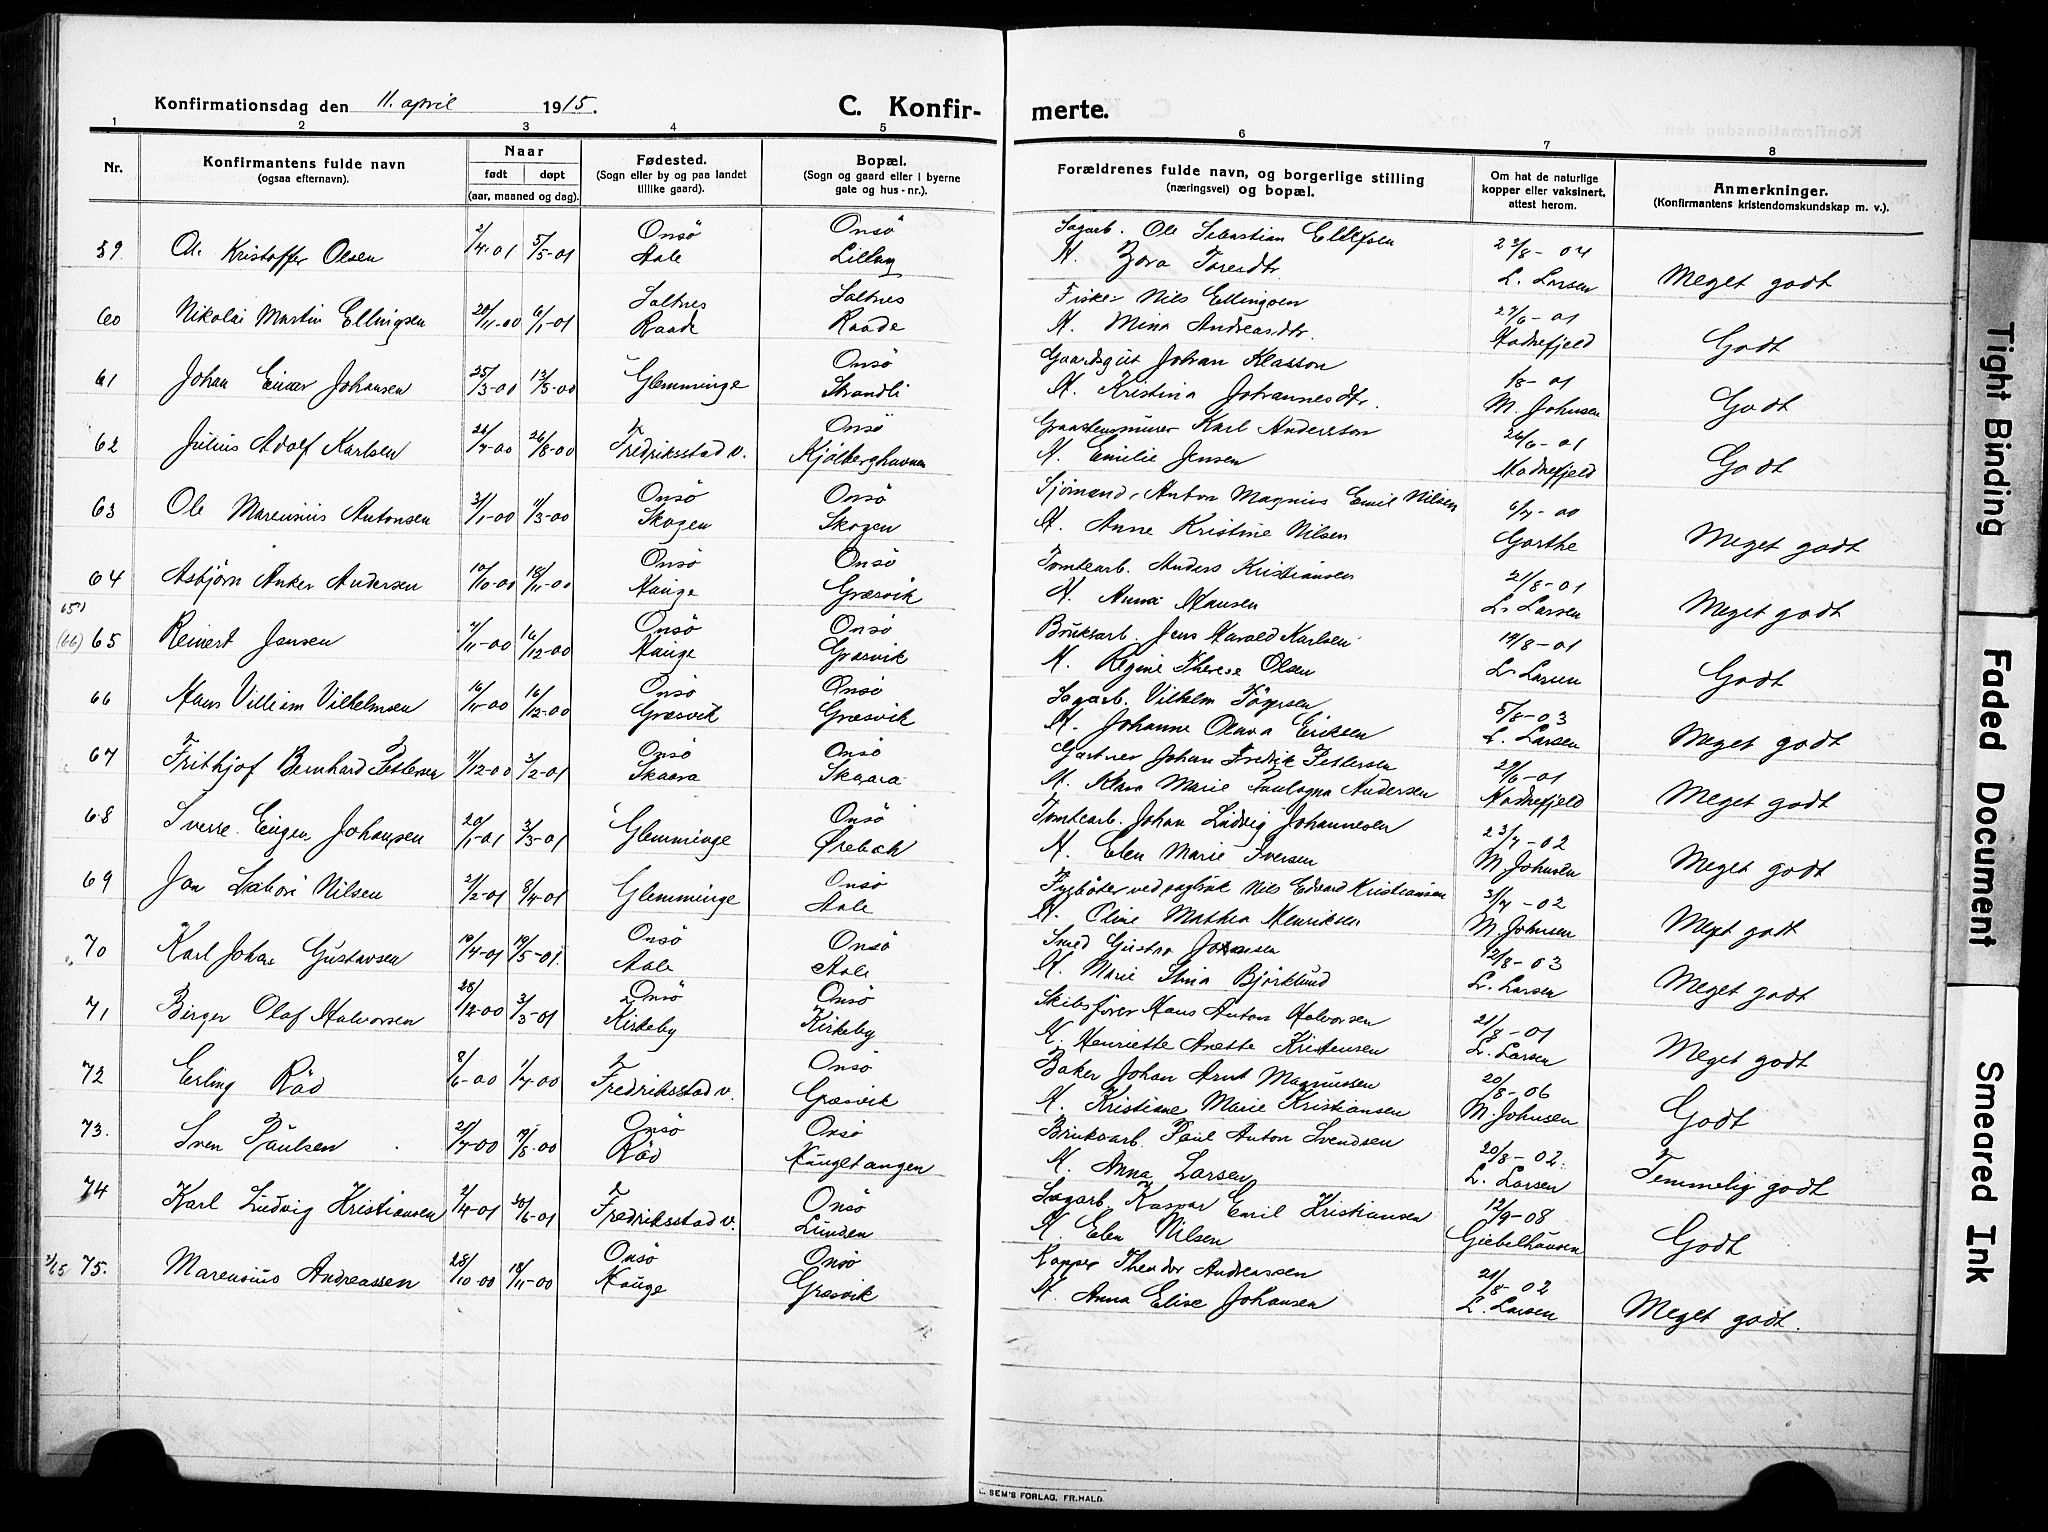 Konfirmationsdag den 11. april 1915.
C. Konfirmerte.
1 2 3 4 5 6 7 8
Nr.
Konfirmantens fulde navn
(ogsaa efternavn).
Naar
født døpt
(aar, maaned og dag).
Fødested.
(Sogn eller by og paa landet
tillike gaard).
Bopæl.
(Sogn og gaard eller i byerne
gate og hus-nr.).
Forældrenes fulde navn, og borgerlige stilling
(næringsvei) og bopæl.
Om hat de naturlige
kopper eller vaksinert,
attest herom.
Anmerkninger.
(Konfirmantens kristendomskundskap m. v.).
59 Ole Kristoffer Olsen 2/4-01 5/5-01 Onsö Aale Onsö Lilleng Sagarb. Ole Sebastian Ellefsen
H. Thoresdtr. 23/8-04 L. Larsen Meget godt
60 Nikolai Martin Ellingsen 20/11-00 6/1-01 Saltnes Raade Saltnes Raade Fisker Nils Ellingsen
H. Mina Andreasdtr. 27/6-01 Godt
61 Johan Einar Johansen 25/3-00 13/5-00 Glemminge Onsö Strandli Gaardsgut Johan Klasson
H. Kristina Johannesdtr. 8-01 M. Johnsen Godt
62 Julius Adolf Karlsen 26/7-00 26/8-00 Fredriksstad v. Onsö Kjölberghavnen Graastensmurer Karl Andersson
H. Emilie Jensen 26/6-01 Godt
63 Ole Marensius Antonsen 3/1-00 11/3-00 Onsö Skogen Onsö Skogen Sjömand Anton Magnus Emil Nilsen
H. Anne Kristine Nilsen 6/7-00 Garthe Meget godt
64 Asbjörn Anker Andersen 10/10-00 18/11-00 Onsö Hauge Onsö Græsvik Tomtearb. Anders Kristiansen
H. Anna Hansen 21/8-01 L. Larsen Meget godt
(66) 65 Reinert Jensen /11-00 16/12-00 Onsö Hauge Onsö Græsvik Bruksarb. Jens Harald Karlsen
H. Regine Therese Olsen 19/8-01 L. Larsen Godt
66 Hans Villiam Vilhelmsen 16/11-00 16/12-00 Onsö Græsvik Onsö Græsvik Sagarb. Vilhelm
H. Johanne Olava Eriksen 5/8-03 L. Larsen Meget godt
67 Frithjof Bernhard Pettersen 11/12-00 3/2-01 Onsö Skaara Onsö Skaara Gartner Johan Fredrik Pettersen
H. Klara Marie Andersen 29/6-01 Meget godt
68 Sverre Eugen Johansen 20/1-01 3/3-01 Glemminge Onsö Ørebæk Tomtearb. Johan Ludvig Johannesen
H. Elen Marie Iversen 23/7-02 M. Johnsen Meget godt
69 Jon Nilsen 2/2-01 8/4-01 Glemminge Onsö Aale ved sagbruk Nils Edvard Kristiansen
H. Oline Mathea Henriksen 31/7-02 M. Johnsen Meget godt
70 Karl Johan Gustavsen 19/4-01 19/5-01. Onsö Aale Onsö Aale Smed Gustav Johansen
H. Marie Stina Björklund 12/8-03 L. Larsen Meget godt
71 Birger Olaf Halvorsen 28/12-00 3/3-01 Onsö Kirkeby Onsö Kirkeby Skibsfører Hans Anton Halvorsen
H. Henriette Anette Kristensen 21/8-01 L. Larsen Meget godt
72 Erling Räd 8/6-00 1/7-00 Fredriksstad v. Onsö Græsvik Baker Johan Arnt Magnussen
H. Kristiane Marie Kristiansen 20/8-06 M. Johnsen Godt
73. Sven Paulsen 21/7-00 19/8-00 Onsö Räd Onsö Haugetangen Bruksarb. Paul Anton Svendsen
H. Anna Larsen 20/8-02. L. Larsen Temmelig godt
74 Karl Ludvig Kristiansen 2/4-01 30/6-01 Fredriksstad v. Onsö Lunden Sagarb. Kaspar Emil Kristiansen
H. Elen Nilsen 12/9-08 Giebelhausen Godt
75. Marensius Andreassen 28/10-00 18/11-00 Onsö Hauge Onsö Græsvik Kapper Theodor Andreassen
H. Anna Elise Johansen 21/8-02 L. Larsen Meget godt.
SEM'S FORLAG, FR.HALD.
Tight Binding
Faded Document
Smeared Ink